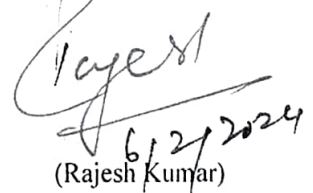 Rajesh
6/2/2024
(Rajesh Kumar)